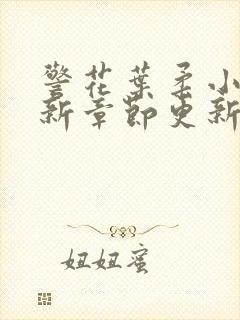 警花葉柔小
新章節更新
妞妞蜜